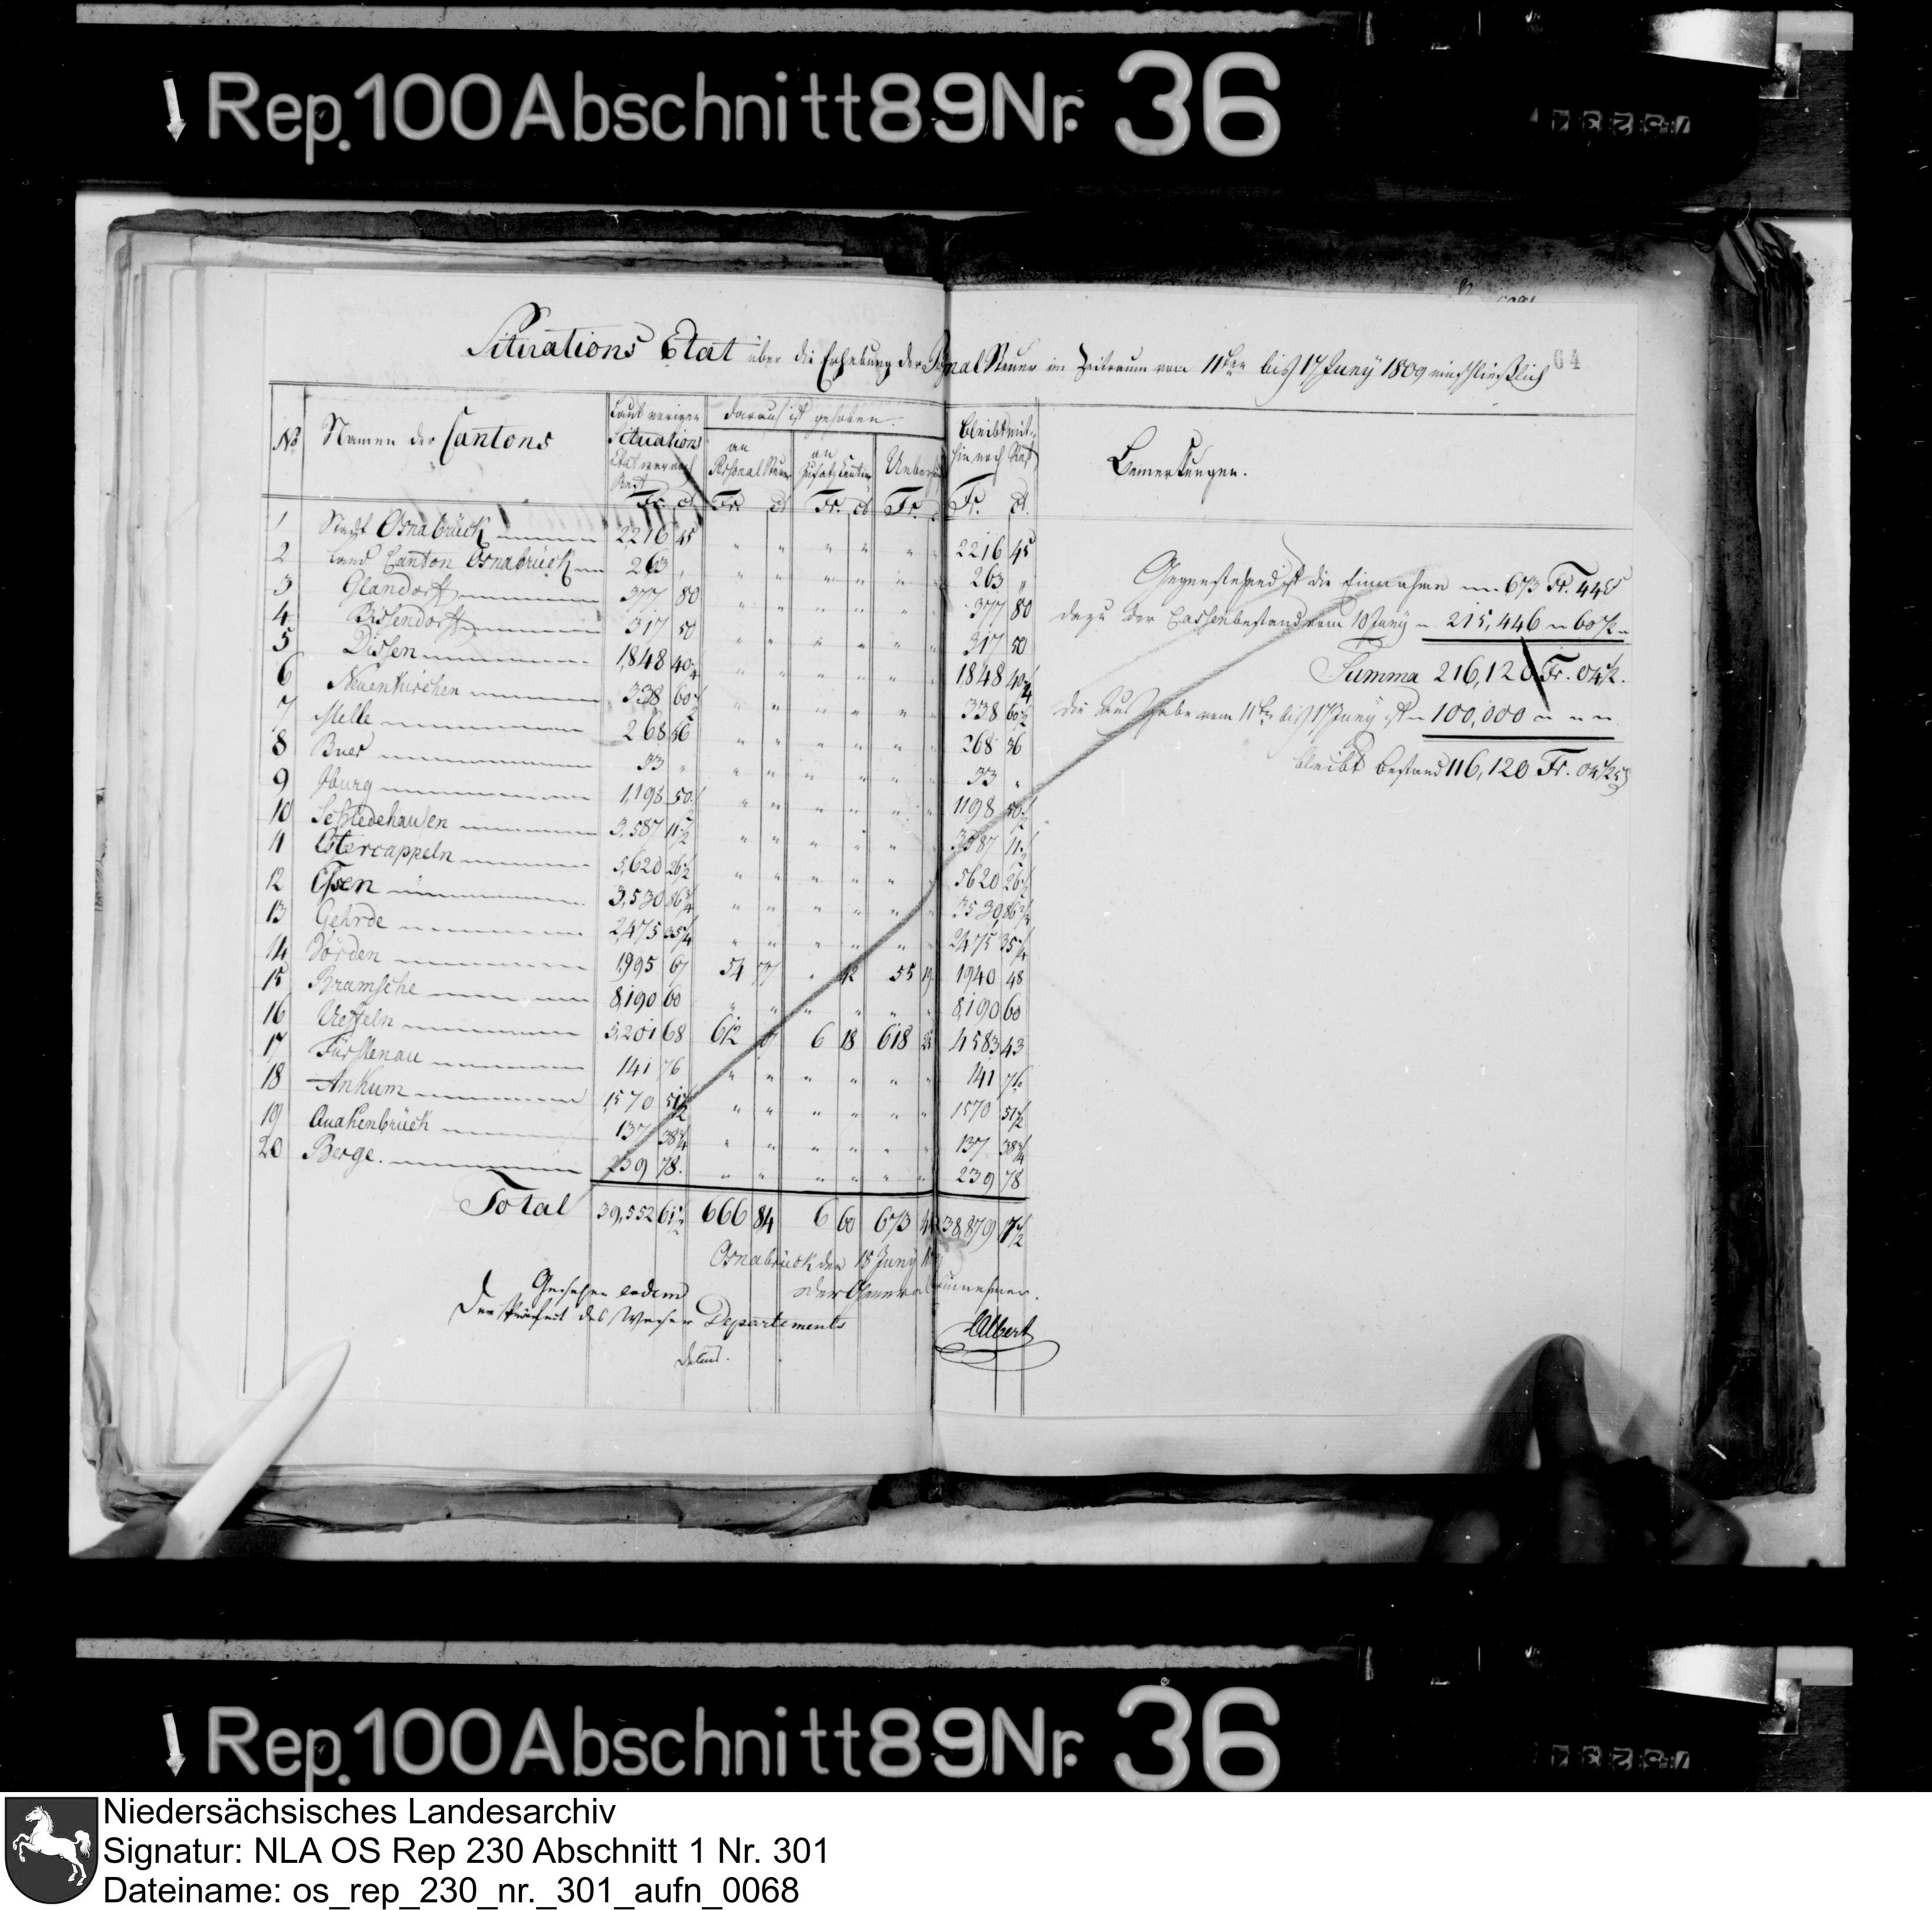 Rep. 100 Abschnitt 89 Nr. 36
Situations Etat über die Erhebung der Personal Steuer im Zeitraum vom 11ten bis 17 Juny 1809 einschließlich
64
No Namen der Cantons Laut vorigen Situations Etat war noch Rest daraus ist gehoben. bleibt mithin noch Rest Bemerkungen.
an Personal Steuer an Zusatz Centim
Fr. ct Fr. ct Fr. ct Fr. Fr. ct.
1 Stadt Osnabrück 2216 45 " " " " " " 2216 45
2 Land Canton Osnabrück 263 " " " " " " " 263 "
3 Glandorf 377 80 " " " " " " 377 80
4 Bissendorf 317 50 " " " " " " 317 50
5 Dissen 1,848 40 3/4 " " " " " " 1848 40 3/4
6 Neuenkirchen 338 60 1/2 " " " " " " 338 60 1/2
7 Melle 268 36 " " " " " " 268 36
8 Buer 33 " " " " " " " 33 "
9 Iburg 1,198 50 1/2 " " " " " " 1198 50 1/2
10 Schledehausen 3,587 11 1/2 " " " " " " 3587 11 1/2
11 Ostercappeln 5,620 26 1/2 " " " " " " 5620 26 1/2
12 Essen 3,530 86 3/4 " " " " " " 3530 86 3/4
13 Gehrde 2,475 35 3/4 " " " " " " 2475 35 3/4
14 Vörden 1,995 67 54 77 " 42 55 19 1940 48
15 Bramsche 8,190 60 " " " " " " 8,190 60
16 Ueffeln 5,201 68 612 07 6 18 618 25 4583 43
17 Fürstenau 141 76 " " " " " " 141 76
18 Ankum 1,570 51 1/2 " " " " " " 1570 51 1/2
19 Quakenbrück 137 38 3/4 " " " " " " 137 38 3/4
20 Berge. 239 78. " " " " " " 239 78
Total 39,552 61 1/2 666 84 6 60 673 44 38,879 17 1/2
Gegenstehend ist die Einnahme 673 Fr. 44
dazu der Cassenbestand vom 10 Juny 215,446 " 60 1/2 "
Summa 216,120 Fr. 04 1/2.
die Ausgabe vom 11ten bis 17 Juny ist 100,000 " " "
bleibt Bestand 116,120 Fr. 04 1/2
Osnabrück den 18 Juny
Gesehen eodem der General Einnehmer.
Der Präfect des Weser Departements
Albert
Niedersächsisches Landesarchiv
Signatur: NLA OS Rep 230 Abschnitt 1 Nr. 301
Dateiname: os_rep_230_nr._301_aufn_0068
Rep. 100 Abschnitt 89 Nr. 36